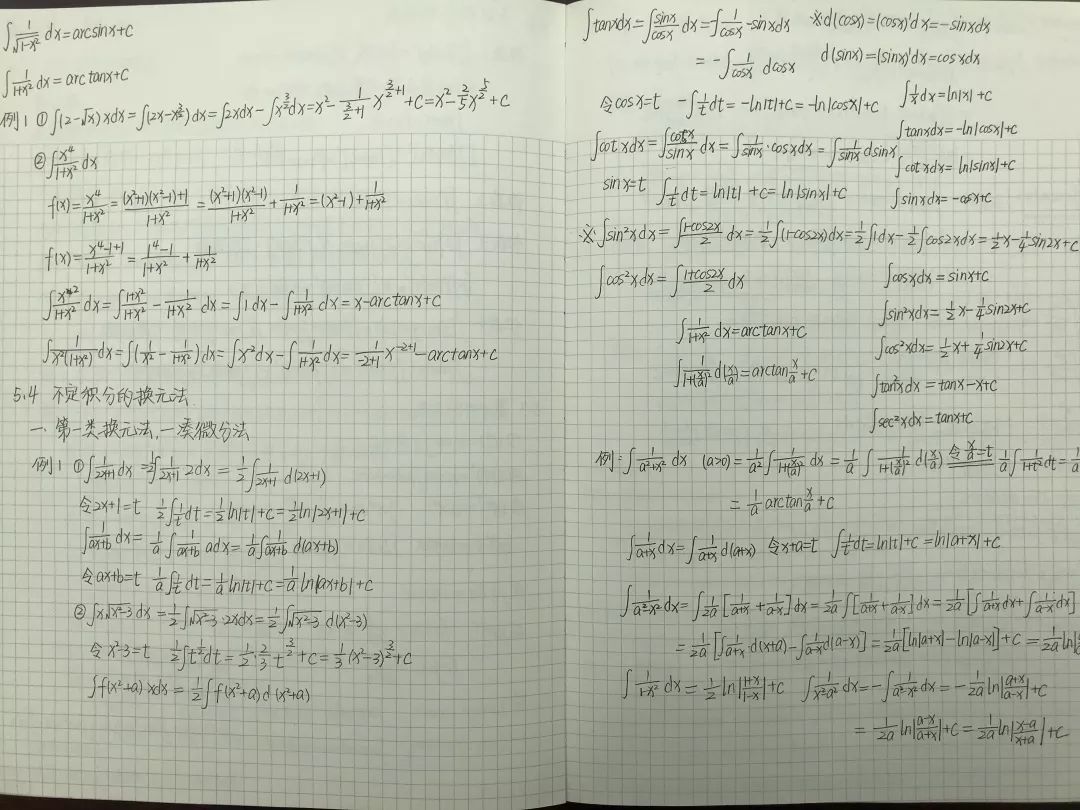 ∫ 1/√(1-x²) dx = arcsinx+C
∫ 1/(1+x²) dx = arctanx+C
例1 ① ∫(2-√x)xdx = ∫(2x-x^(3/2))dx = ∫2xdx - ∫x^(3/2)dx = x² - 1/(3/2+1) x^(3/2+1) + C = x² - 2/5 x^(5/2) + C
② ∫ x⁴/(1+x²) dx
f(x) = x⁴/(1+x²) = ((x²+1)(x²-1)+1)/(1+x²) = (x²+1)(x²-1)/(1+x²) + 1/(1+x²) = (x²-1) + 1/(1+x²)
f(x) = (x⁴-1+1)/(1+x²) = (1⁴-1)/(1+x²) + 1/(1+x²)
∫ x²/(1+x²) dx = ∫ (1+x²)/(1+x²) - 1/(1+x²) dx = ∫1dx - ∫ 1/(1+x²) dx = x-arctanx+C
∫ 1/(x²(1+x²)) dx = ∫(1/x² - 1/(1+x²))dx = ∫x⁻²dx - ∫ 1/(1+x²) dx = 1/(-2+1) x^(-2+1) - arctanx+C
5.4 不定积分的换元法
一、第一类换元法,—凑微分法
例1 ① ∫ 1/(2x+1) dx = 1/2 ∫ 1/(2x+1) 2dx = 1/2 ∫ 1/(2x+1) d(2x+1)
令2x+1=t 1/2 ∫ 1/t dt = 1/2 ln|t|+C = 1/2 ln|2x+1|+C
∫ 1/(ax+b) dx = 1/a ∫ 1/(ax+b) adx = 1/a ∫ 1/(ax+b) d(ax+b)
令ax+b=t 1/a ∫ 1/t dt = 1/a ln|t|+C = 1/a ln|ax+b|+C
② ∫x√(x²-3) dx = 1/2 ∫√(x²-3)·2xdx = 1/2 ∫√(x²-3) d(x²-3)
令x²-3=t 1/2 ∫t^(1/2)dt = 1/2·2/3 t^(3/2) + C = 1/3 (x²-3)^(3/2) + C
∫f(x²+a)xdx = 1/2 ∫f(x²+a)d(x²+a)
∫tanxdx = ∫ sinx/cosx dx = -∫ 1/cosx ·-sinxdx ※d(cosx)=(cosx)'dx=-sinxdx
= -∫ 1/cosx dcosx d(sinx)=(sinx)'dx=cosxdx
令cosx=t -∫ 1/t dt = -ln|t|+C = -ln|cosx|+C ∫ 1/x dx = ln|x|+C
∫tanxdx = -ln|cosx|+C
∫cotxdx = ∫ cosx/sinx dx = ∫ 1/sinx ·cosxdx = ∫ 1/sinx dsinx
∫cotxdx = ln|sinx|+C
sinx=t ∫ 1/t dt = ln|t|+C = ln|sinx|+C
∫sinxdx = -cosx+C
※∫sin²xdx = ∫ (1-cos2x)/2 dx = 1/2 ∫(1-cos2x)dx = 1/2 ∫1dx - 1/2 ∫cos2xdx = 1/2 x - 1/4 sin2x+C
∫cos²xdx = ∫ (1+cos2x)/2 dx
∫cosxdx = sinx+C
∫sin²xdx = 1/2 x - 1/4 sin2x+C
∫ 1/(1+x²) dx = arctanx+C
∫cos²xdx = 1/2 x + 1/4 sin2x+C
∫ 1/(1+(x/a)²) d(x/a) = arctan x/a + C
∫tan²xdx = tanx-x+C
∫sec²xdx = tanx+C
例: ∫ 1/(a²+x²) dx (a>0) = 1/a² ∫ 1/(1+(x/a)²) dx = 1/a ∫ 1/(1+(x/a)²) d(x/a) 令 x/a = t 1/a ∫ 1/(1+t²) dt =
= 1/a arctan x/a + C
∫ 1/(a+x) dx = ∫ 1/(a+x) d(a+x) 令x+a=t ∫ 1/t dt = ln|t|+C = ln|a+x|+C
∫ 1/(a²-x²) dx = ∫ 1/2a [1/(a+x) + 1/(a-x)]dx = 1/2a ∫[1/(a+x) + 1/(a-x)]dx = 1/2a [∫ 1/(a+x) dx + ∫ 1/(a-x) dx]
= 1/2a [∫ 1/(a+x) ·d(x+a) - ∫ 1/(a-x) d(a-x)] = 1/2a [ln|a+x| - ln|a-x|]+C = 1/2a ln|
∫ 1/(1-x²) dx = 1/2 ln|(1+x)/(1-x)|+C ∫ 1/(x²-a²) dx = -∫ 1/(a²-x²) dx = -1/2a ln|(a+x)/(a-x)|+C
= 1/2a ln|(a-x)/(a+x)|+C = 1/2a ln|(x-a)/(x+a)|+C